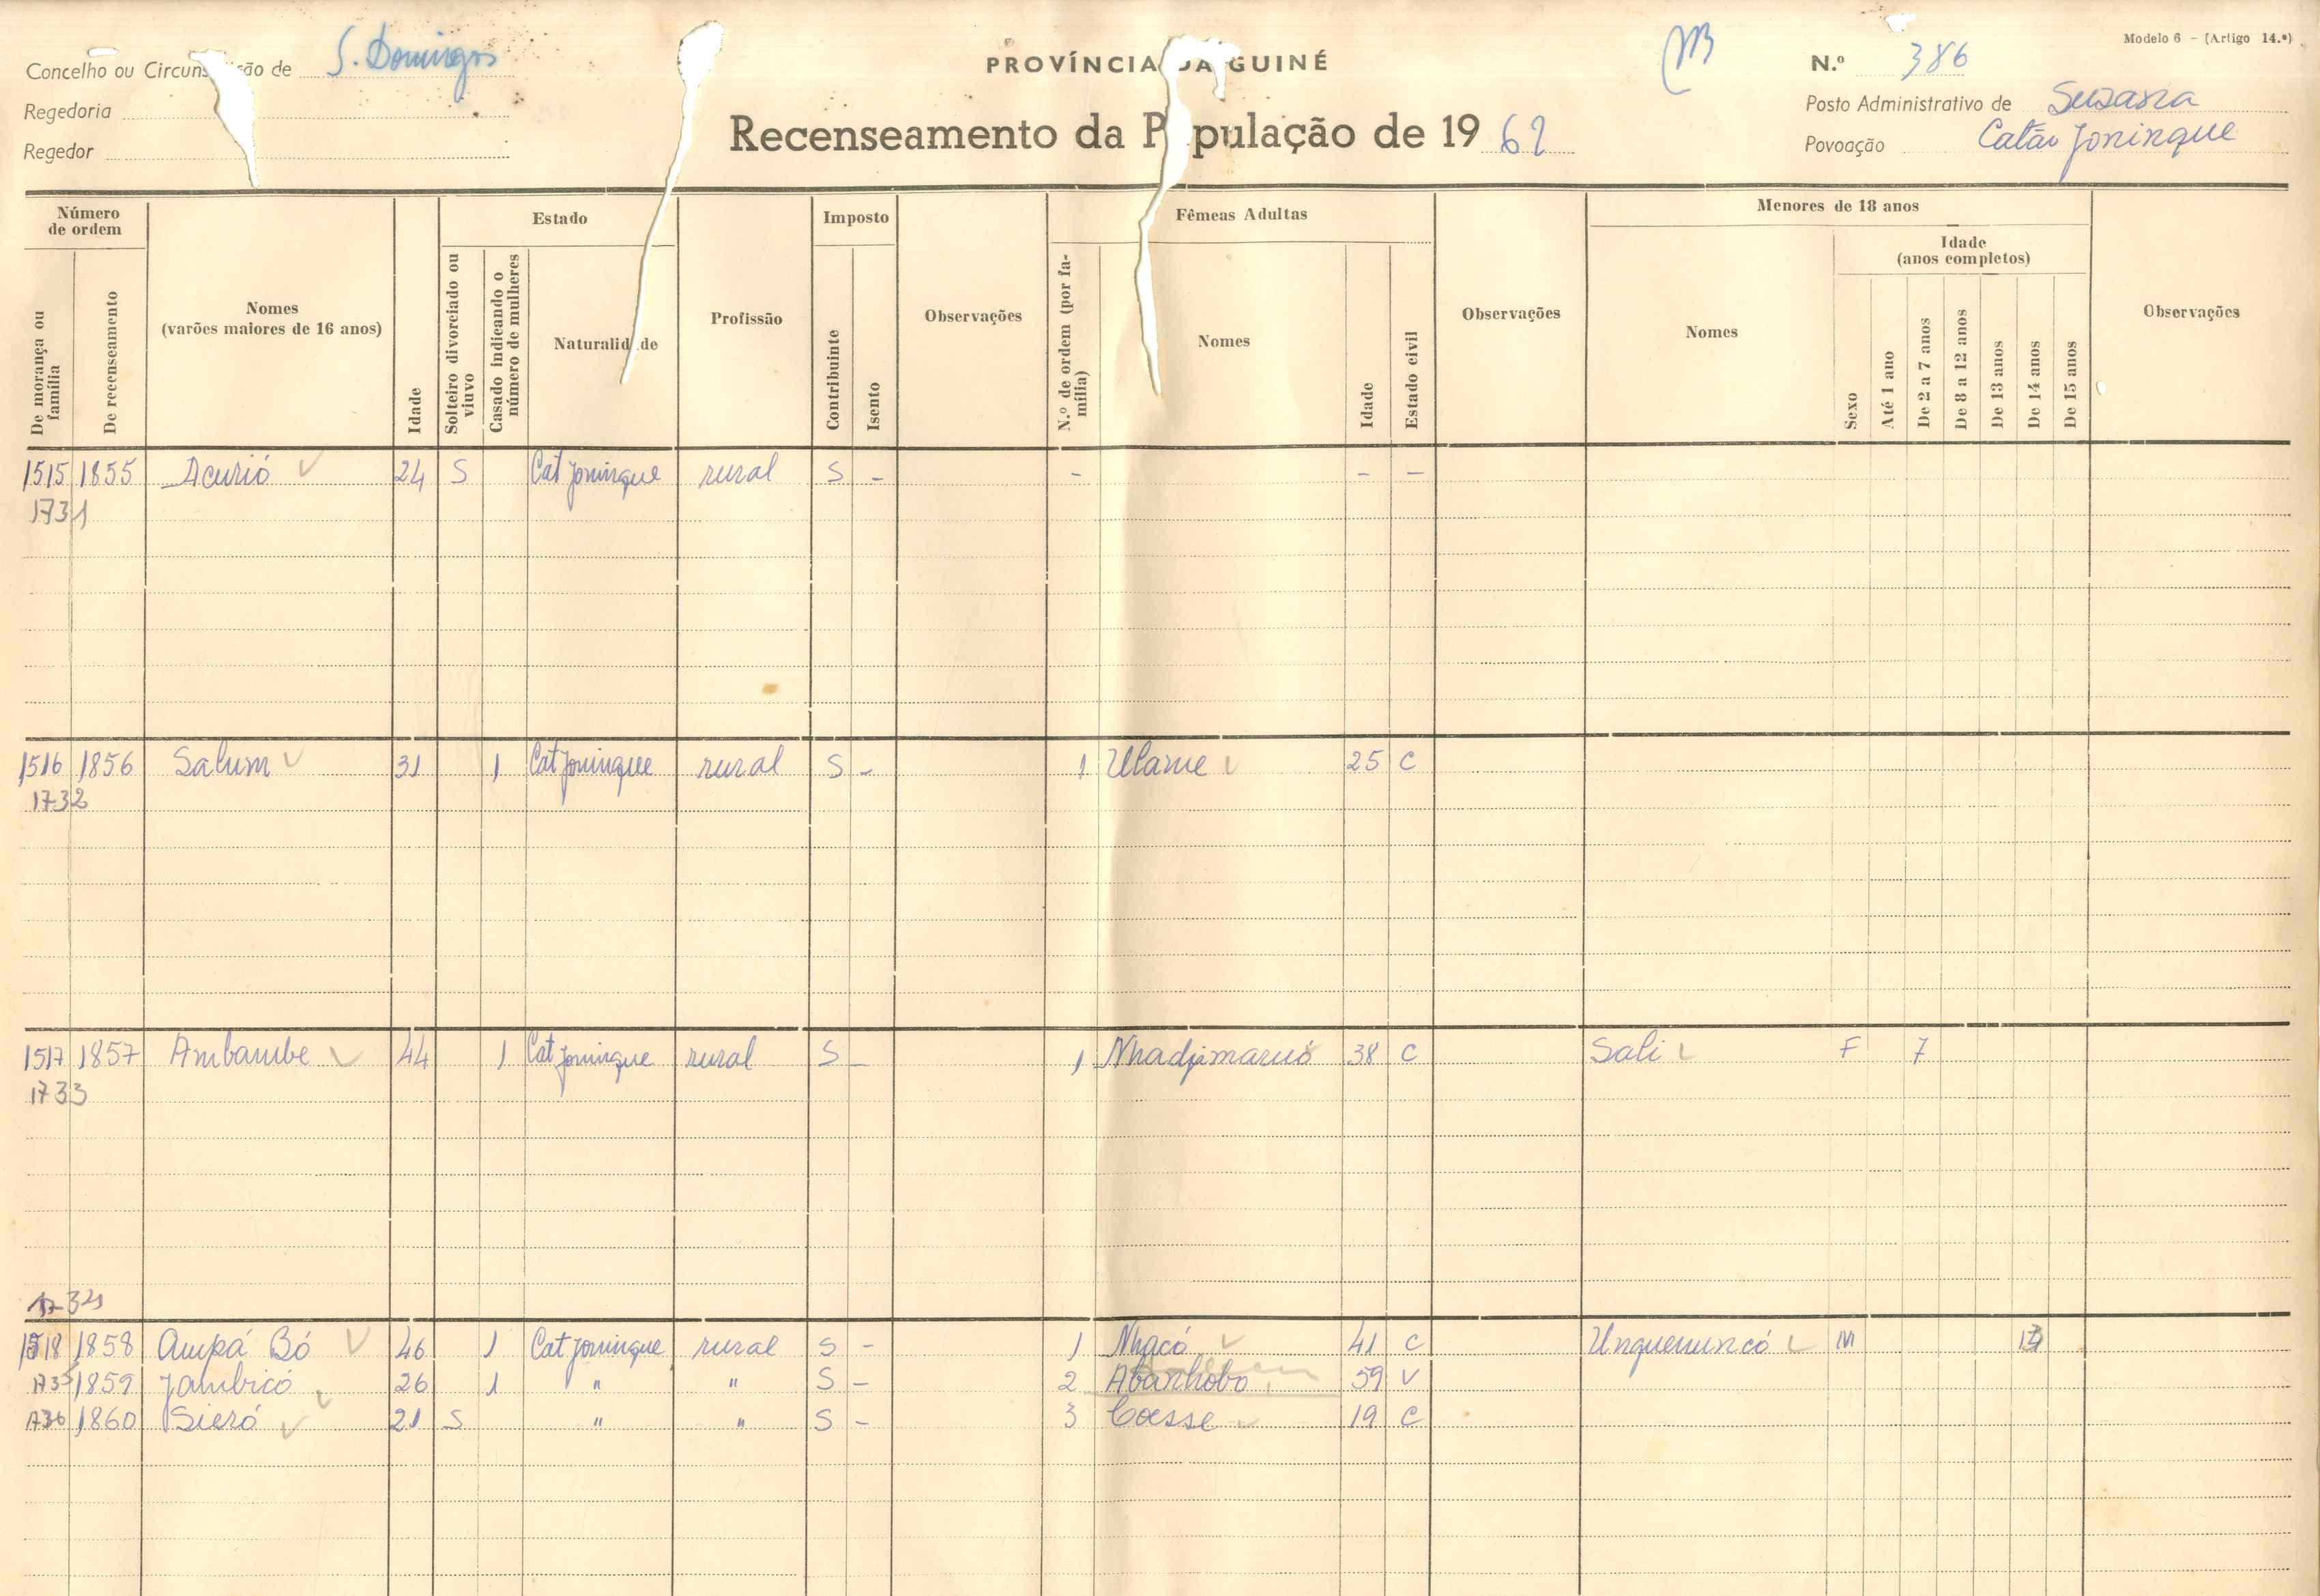 Modelo 6 – (Artigo 14.º)
Concelho ou Circuns ção de S. Domingos
PROVÍNCIA DA GUINÉ
N.º 386
Regedoria
Recenseamento da P pulação de 1962
Posto Administrativo de Suzana
Regedor
Povoação Catão Joninque
Número de ordem
De morança ou família
De recenseamento
Nomes
(varões maiores de 16 anos)
Idade
Estado
Solteiro divorciado ou viuvo
Casado indicando o número de mulheres
Naturalid de
Profissão
Imposto
Contribuinte
Isento
Observações
Fêmeas Adultas
N.º de ordem (por família)
Nomes
Idade
Estado civil
Observações
Menores de 18 anos
Nomes
Sexo
Idade
(anos completos)
Até 1 ano
De 2 a 7 anos
De 8 a 12 anos
De 13 anos
De 14 anos
De 15 anos
Observações
1515 1855 Acurió 24 S Cat Joninque rural S - - - -
1731
1516 1856 Salum 31 1 Cat Joninque rural S - 1 Ulame 25 C
1732
1517 1857 Ambambe 44 1 Cat Joninque rural S - 1 38 C Sali F 7
1733
1734
1518 1858 Ampá Bó 46 1 Cat Joninque rural S - 1 Nhacó 41 C M
1735 1859 Jambicó 26 1 " " S - 2 Abanhobo 59 V
1736 1860 Sieró 21 S " " S - 3 Coesse 19 C